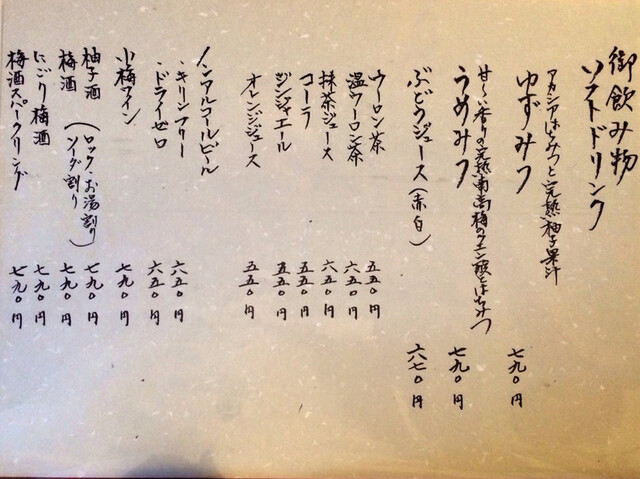 御飲み物
ソフトドリンク
アカシアはちみつと完熟柚子果汁
ゆずみつ 七九〇円
甘〜い香りの完熟南高梅のクエン酸とはちみつ
うめみつ 七九〇円
ぶどうジュース(赤白) 六八〇円
ウーロン茶 五五〇円
温ウーロン茶 六五〇円
抹茶ジュース 六五〇円
コーラ 五五〇円
ジンジャエール 五五〇円
オレンジジュース 五五〇円
ノンアルコールビール
・キリンフリー 六五〇円
・ドライゼロ 六五〇円
小梅ワイン 七九〇円
柚子酒 七九〇円
梅酒 七九〇円
(ロック・お湯割り
ソーダ割り)
にごり梅酒 七九〇円
梅酒スパークリング 七九〇円